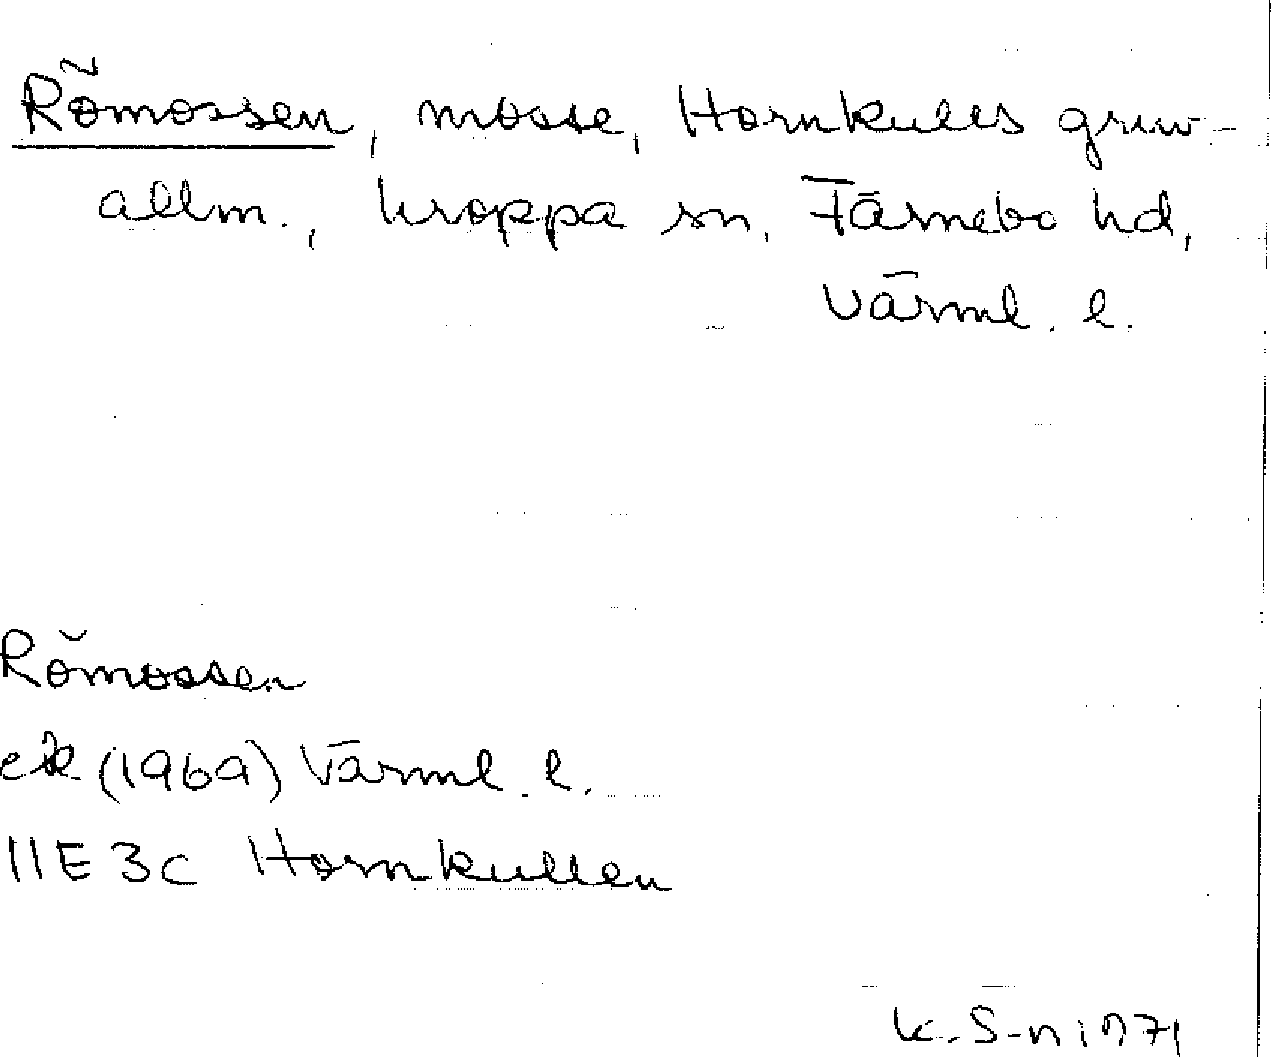 Römossen, mosse, Hornkulls gruv-
allm., Kroppa sn, Färnebo hd,
Värml. l.
Römossen
ek (1969) Värml. l.
11E 3c Hornkullen
K. S-n 1971